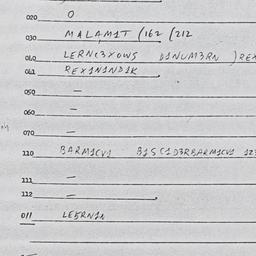 020 0
030 MALAM1T (162 (212
040 LERN(3XOWS D1NUM3RN )REX
041 REX1N1ND1K
050 —
060 —
070 —
110 BARM1CV1 B1SC1D3RBARM1CV1 123
111 —
112 —
011 LE5RN1A